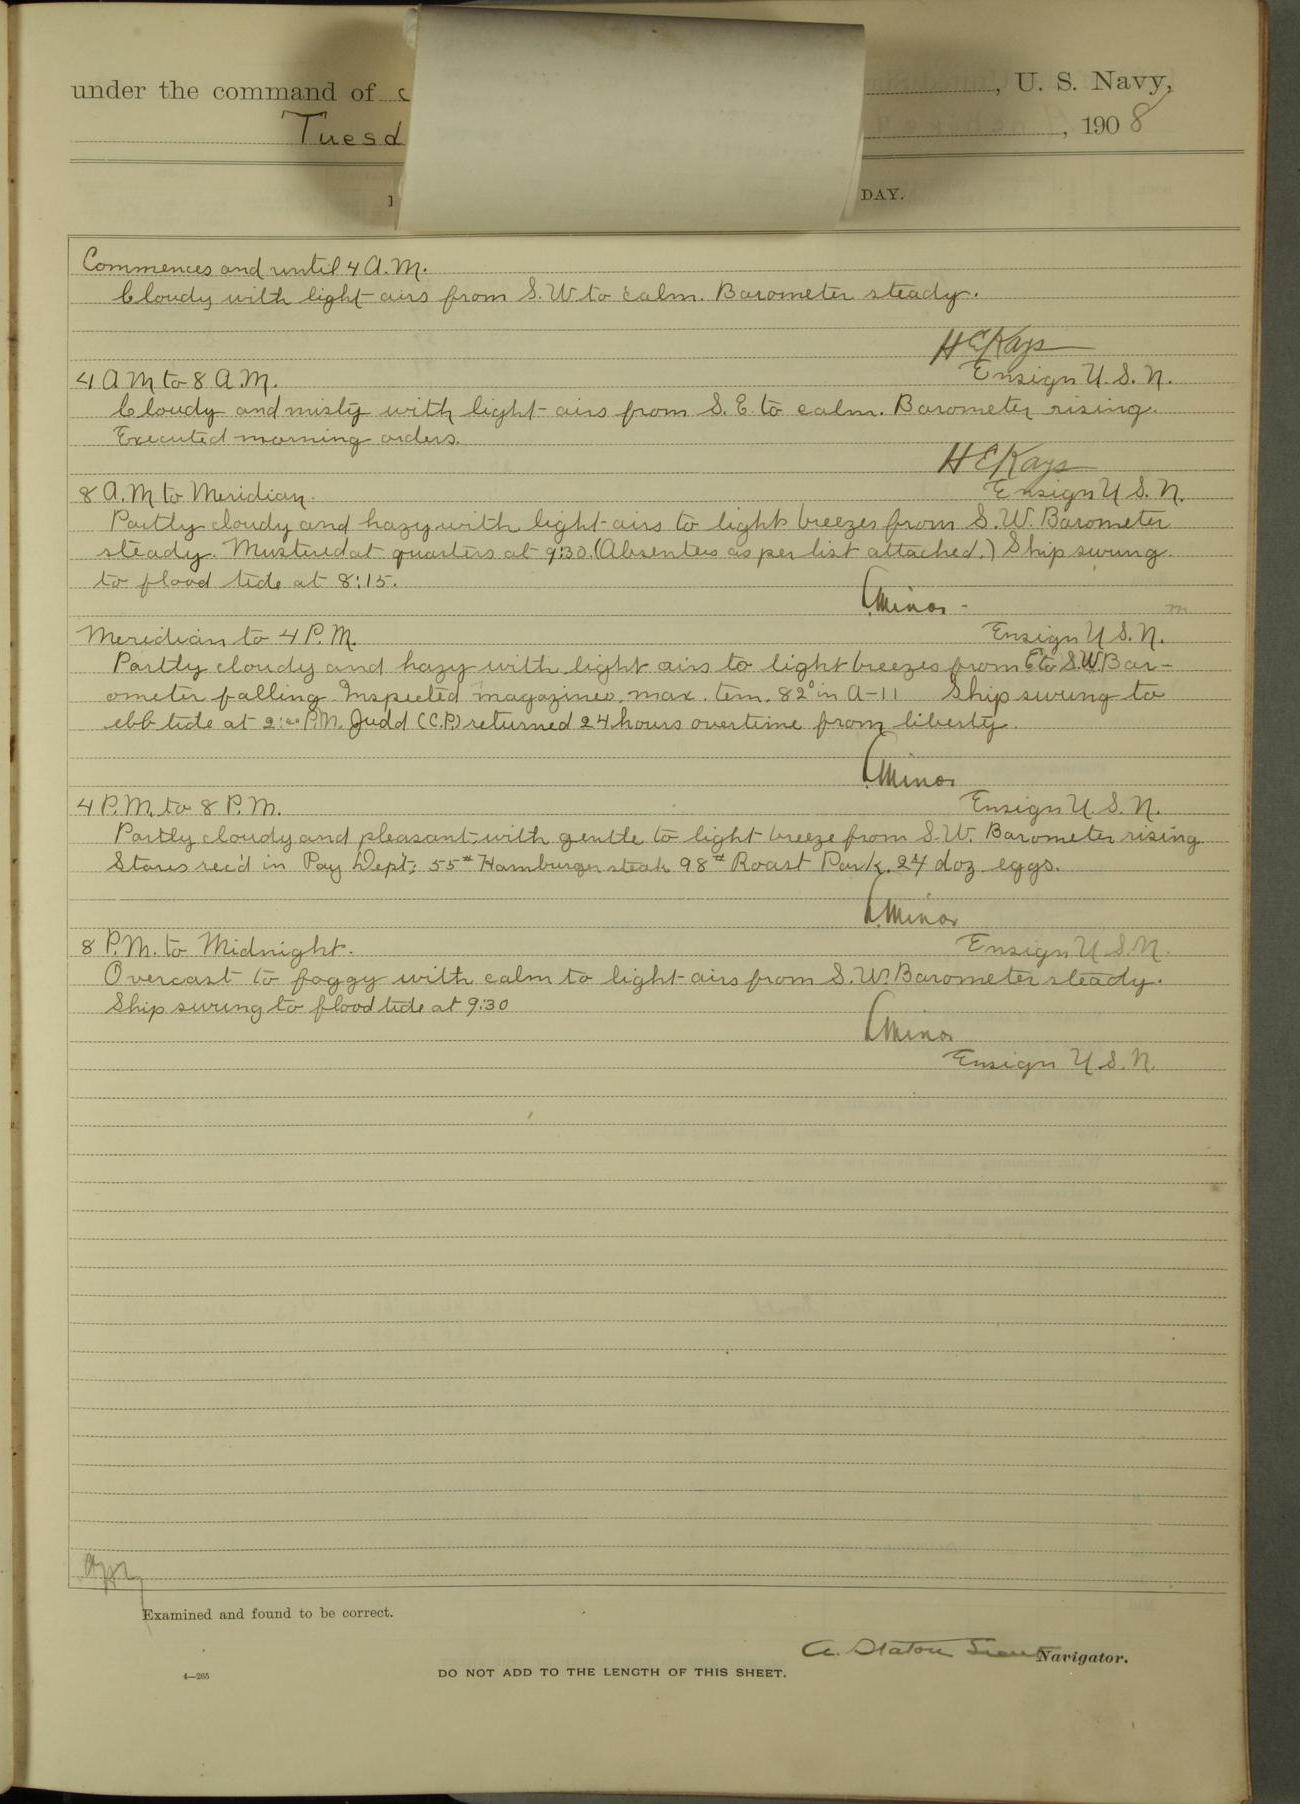 under the command of , U. S. Navy,
Tuesd , 1908
DAY.
Commences and until 4 A.M.
Cloudy with light airs from S.W to calm. Barometer steady.
H E Kays
4 A M to 8 A.M. Ensign U. S. N.
Cloudy and misty with light airs from S.E. to calm. Barometer rising.
Executed morning orders.
H E Kays
8 A.M to Meridian. Ensign U S. N.
Partly cloudy and hazy with light airs to light breezes from S.W. Barometer
steady. Mustered at quarters at 9:30. (Absentees as per list attached.) Ship swung
to flood tide at 8:15.
Minor
Meridian to 4 P.M. Ensign U S. N.
Partly cloudy and hazy with light airs to light breezes from E to S.W. Bar-
ometer falling. Inspected magazines, max. tem. 82° in A-11 Ship swung to
ebb tide at P.M. Judd (C.P.) returned 24 hours overtime from liberty.
Minor
4 P.M. to 8 P.M. Ensign U. S. N.
Partly cloudy and pleasant, with gentle to light breeze from S.W. Barometer rising
Stores rec'd in Pay Dept; 55# Hamburger steak 98# Roast Pork. 24 doz. eggs.
Minor
8 P.M. to Midnight. Ensign U.S.N.
Overcast to foggy with calm to light airs from S.W. Barometer steady.
Ship swung to flood tide at 9:30
Minor
Ensign U. S. N.
Examined and found to be correct.
A. Staton Navigator.
4—265 DO NOT ADD TO THE LENGTH OF THIS SHEET.